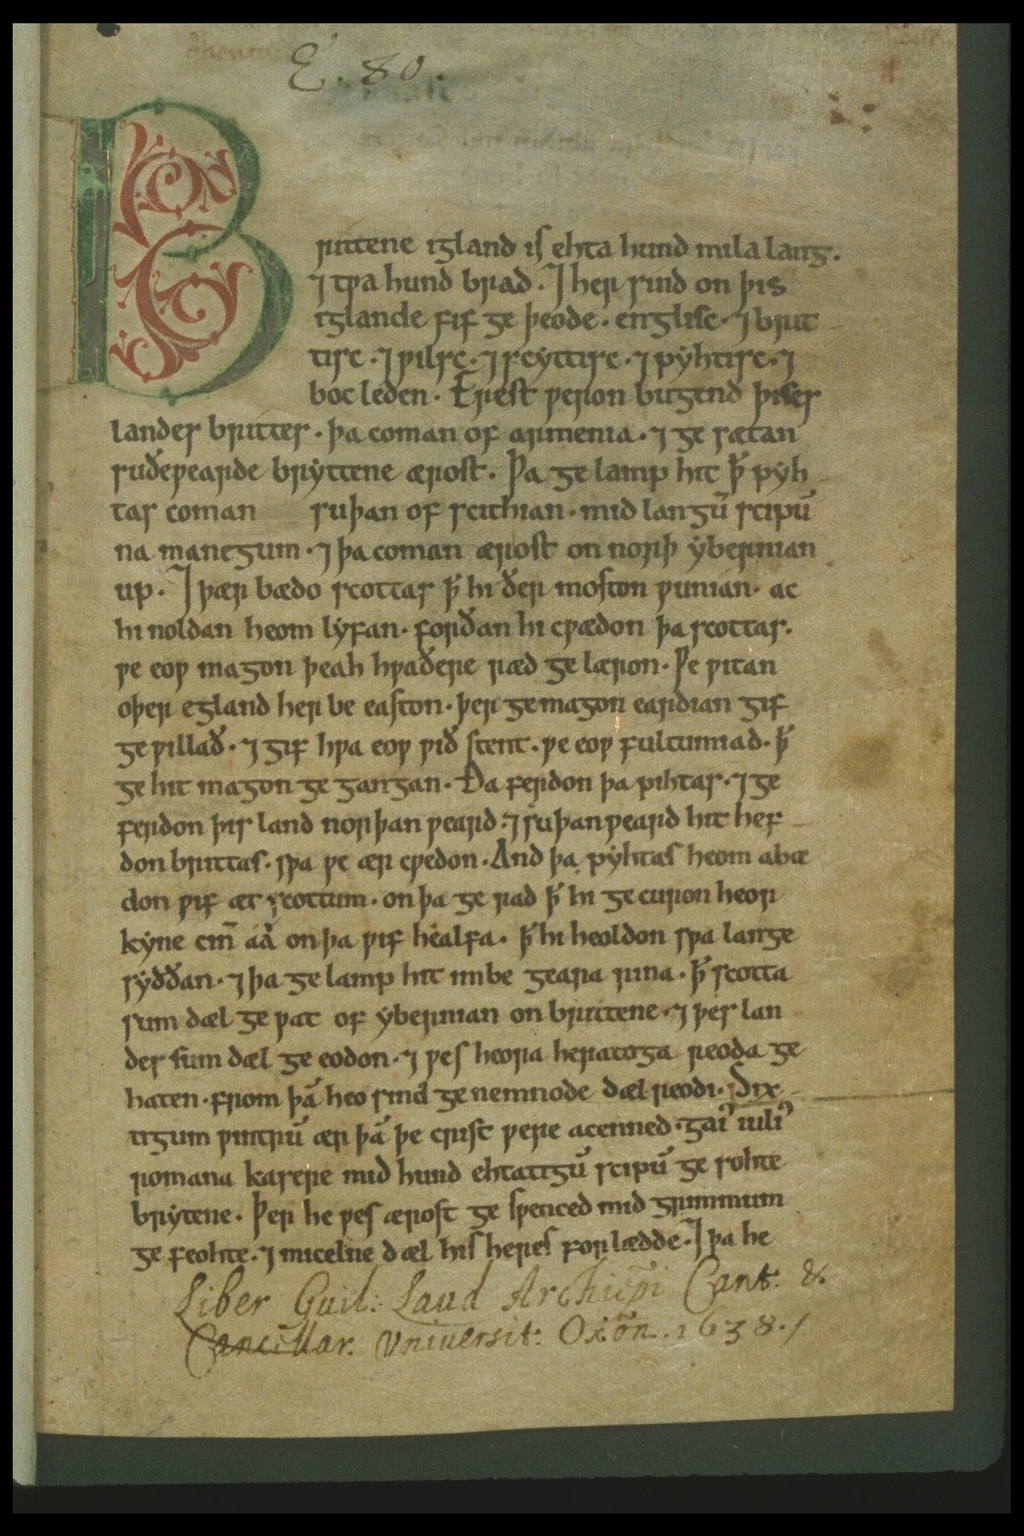 E. 80.
Brittene igland is ehta hund mila lang.
⁊ tƿa hund brad. ⁊ her sind on þis
iglande fif ge þeode. englisc. ⁊ brit
tisc. ⁊ ƿilsc. ⁊ scẏttisc. ⁊ pẏhtisc. ⁊
boc leden. Erest ƿeron bugend þises
landes brittes. þa coman of armenia. ⁊ ge sætan
suðeƿearde brẏttene ærost. Þa ge lamp hit ꝥ pẏh
tas coman suþan of scithian. mid langū scipū
na manegum. ⁊ þa coman ærost on norþ ẏbernian
up. ⁊ þær bædo scottas ꝥ hi ðer moston ƿunian. ac
hi noldan heom lẏfan. forðan hi cƿædon þa scottas.
ƿe eoƿ magon þeah hƿaðere ræd ge læron. Ƿe ƿitan
oþer egland her be easton. þer ge magon eardian gif
ge ƿillað. ⁊ gif hƿa eoƿ ƿið stent. ƿe eoƿ fultumiad. ꝥ
ge hit magon ge gangan. Ða ferdon þa pihtas. ⁊ ge
ferdon þis land norþan ƿeard. ⁊ suþan ƿeard hit hef
don brittas. sƿa ƿe ær cƿedon. And þa pẏhtas heom abæ
don ƿif æt scottum. on þa ge rad ꝥ hi ge curon heor
kẏne cin̄ aá on þa ƿif healfa. ꝥ hi heoldon sƿa lange
sẏððan. ⁊ þa ge lamp hit imbe geara rina. ꝥ scotta
sum dæl ge ƿat of ẏbernian on brittene. ⁊ þes lan
des sum dæl ge eodon. ⁊ ƿes heora heratoga reoda ge
haten. from þā heo sind ge nemnode dæl reodi. Six
tigum ƿintrū ær þā þe crist ƿere acenned. gaiꝰ iuliꝰ
romana kasere mid hund ehtatigū scipū ge sohte
brẏtene. Þer he ƿes ærost ge sƿenced mid grimmum
ge feohte. ⁊ micelne dæl his heres forlædde. ⁊ þa he
Liber Guil: Laud Archiep̄i Cant. &
Cancellar. Vniuersit: Oxōn. 1638./